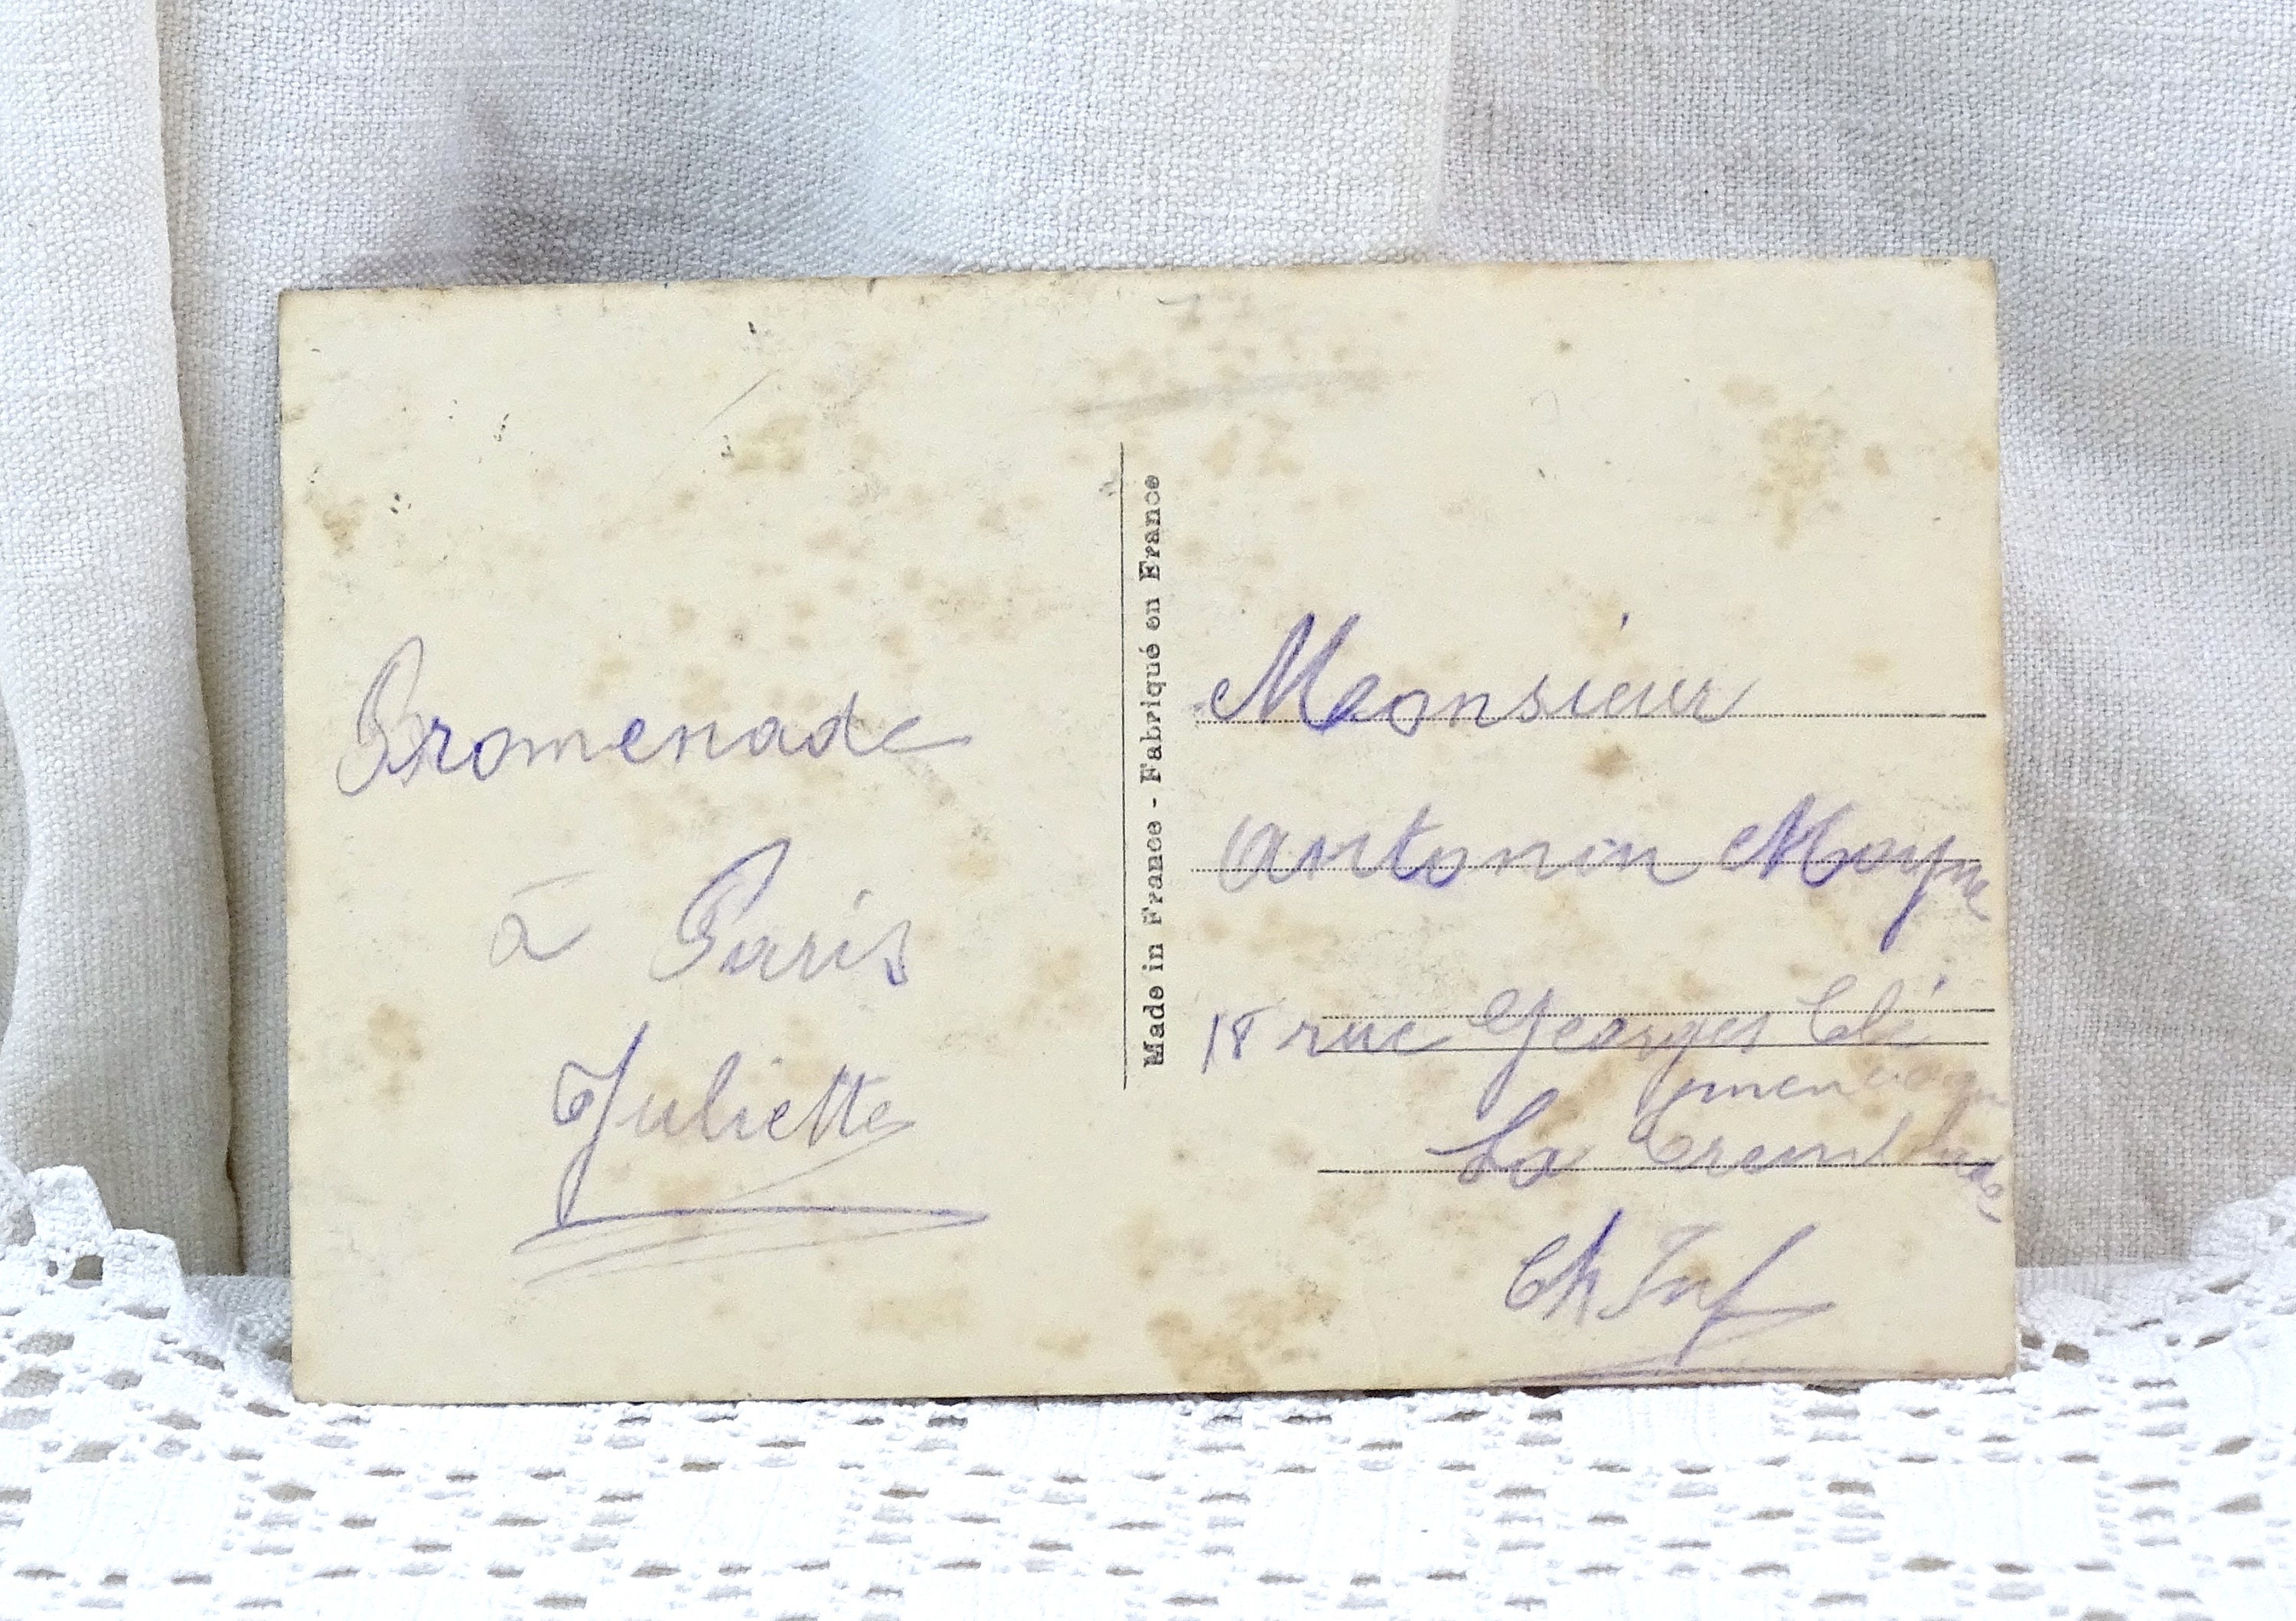 Promenade
à Paris
Juliette
Made in France - Fabriqué en France
Monsieur
Antonin Moyne
18 rue Georges Clé
La Tremblade
Ch Inf